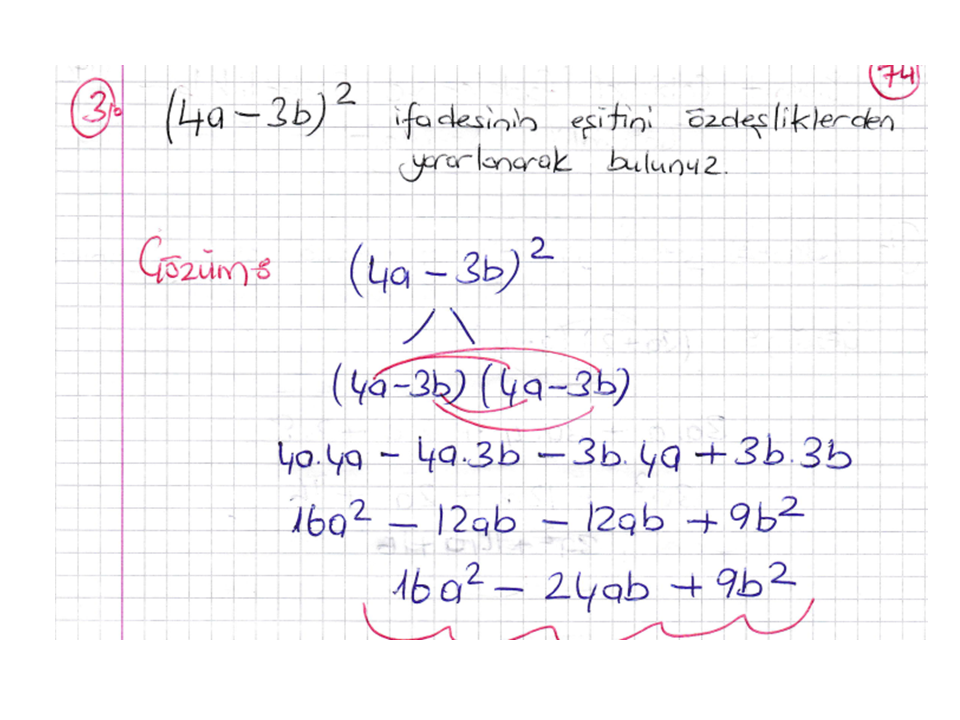 74
3) (4a-3b)² ifadesinin eşitini özdeşliklerden
yararlanarak bulunuz.
Çözüm: (4a-3b)²
(4a-3b)(4a-3b)
4a.4a - 4a.3b - 3b.4a + 3b.3b
16a² - 12ab - 12ab + 9b²
16a² - 24ab + 9b²